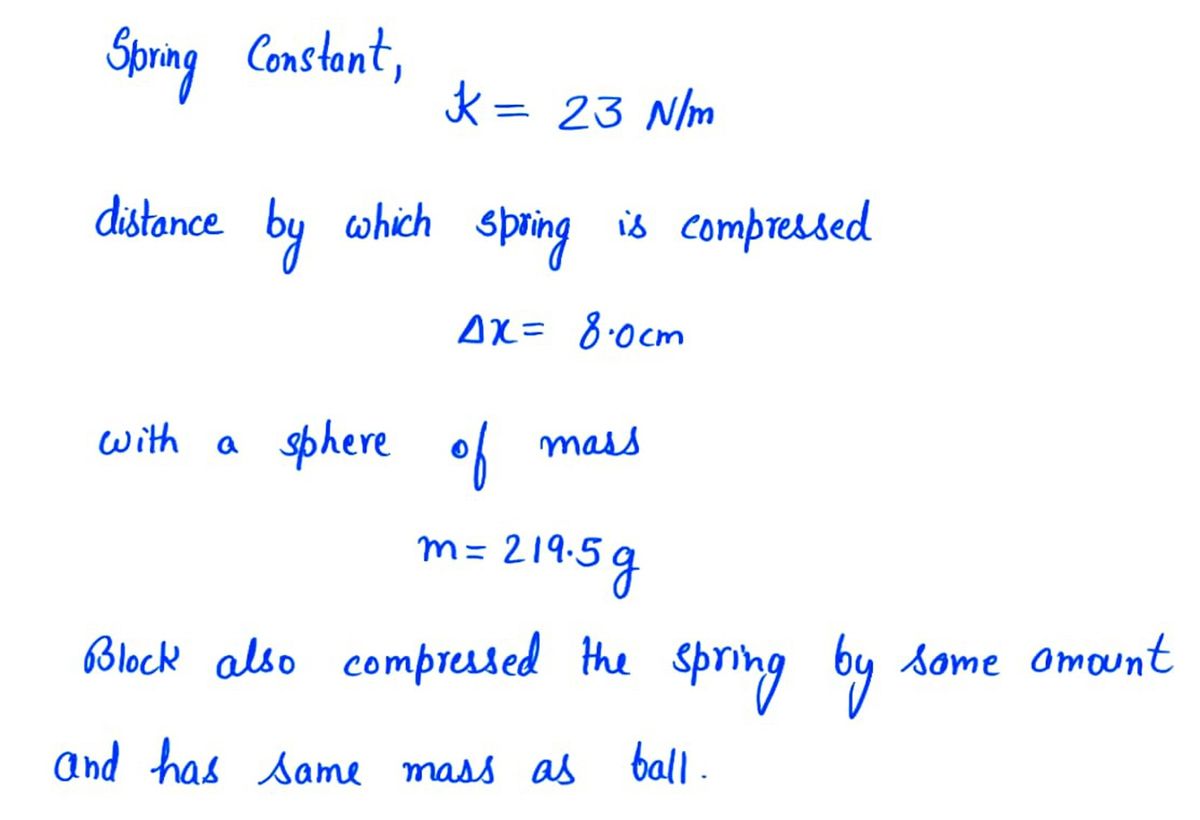 Spring Constant,
k = 23 N/m
distance by which spring is compressed
Δx = 8.0cm
with a sphere of mass
m = 219.5g
Block also compressed the spring by same amount
and has same mass as ball.